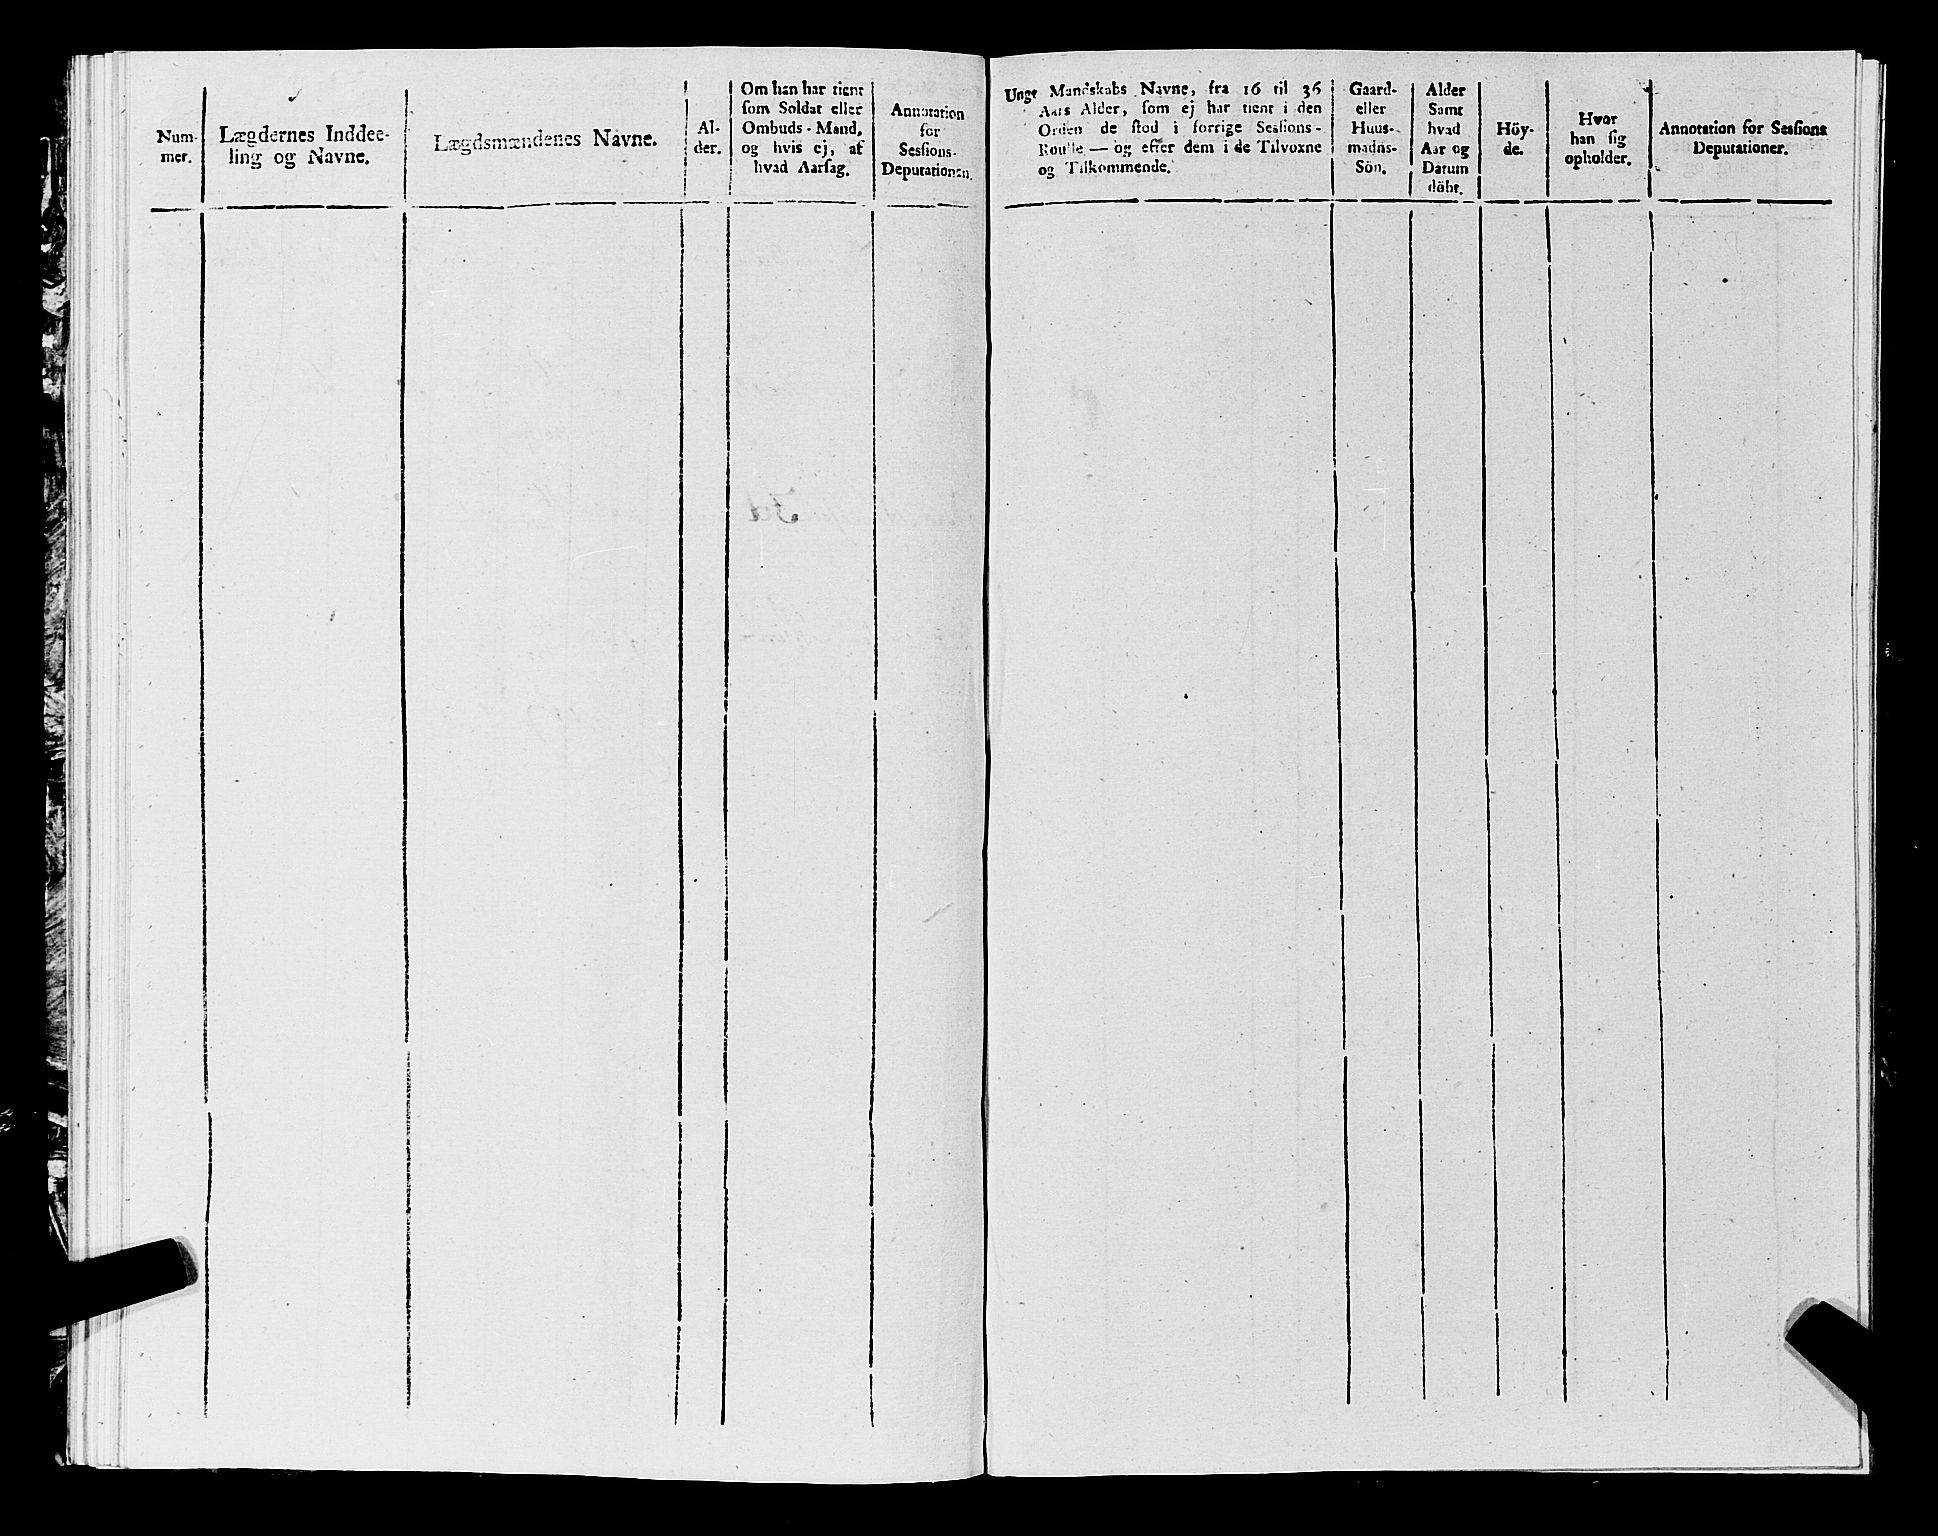 Num-
mer.
Lægdernes Inddee-
ling og Navne.
Lægdsmændenes Navne.
Al-
der.
Om han har tient
som Soldat eller
Ombuds-Mand,
og hvis ej, af
hvad Aarsag.
Annotation
for
Sessions-
Deputationen.
Unge Mandskabs Navne, fra 16 til 36
Aars Alder, som ej har tient i den
Orden de stod i forrige Sessions-
Roulle — og efter dem i de Tilvoxne
og Tilkommende.
Gaard-
eller
Huus-
mands-
Sön.
Alder
Samt
hvad
Aar og
Datum
döbt.
Höy-
de.
Hvor
han sig
opholder.
Annotation for Sessions
Deputationer.